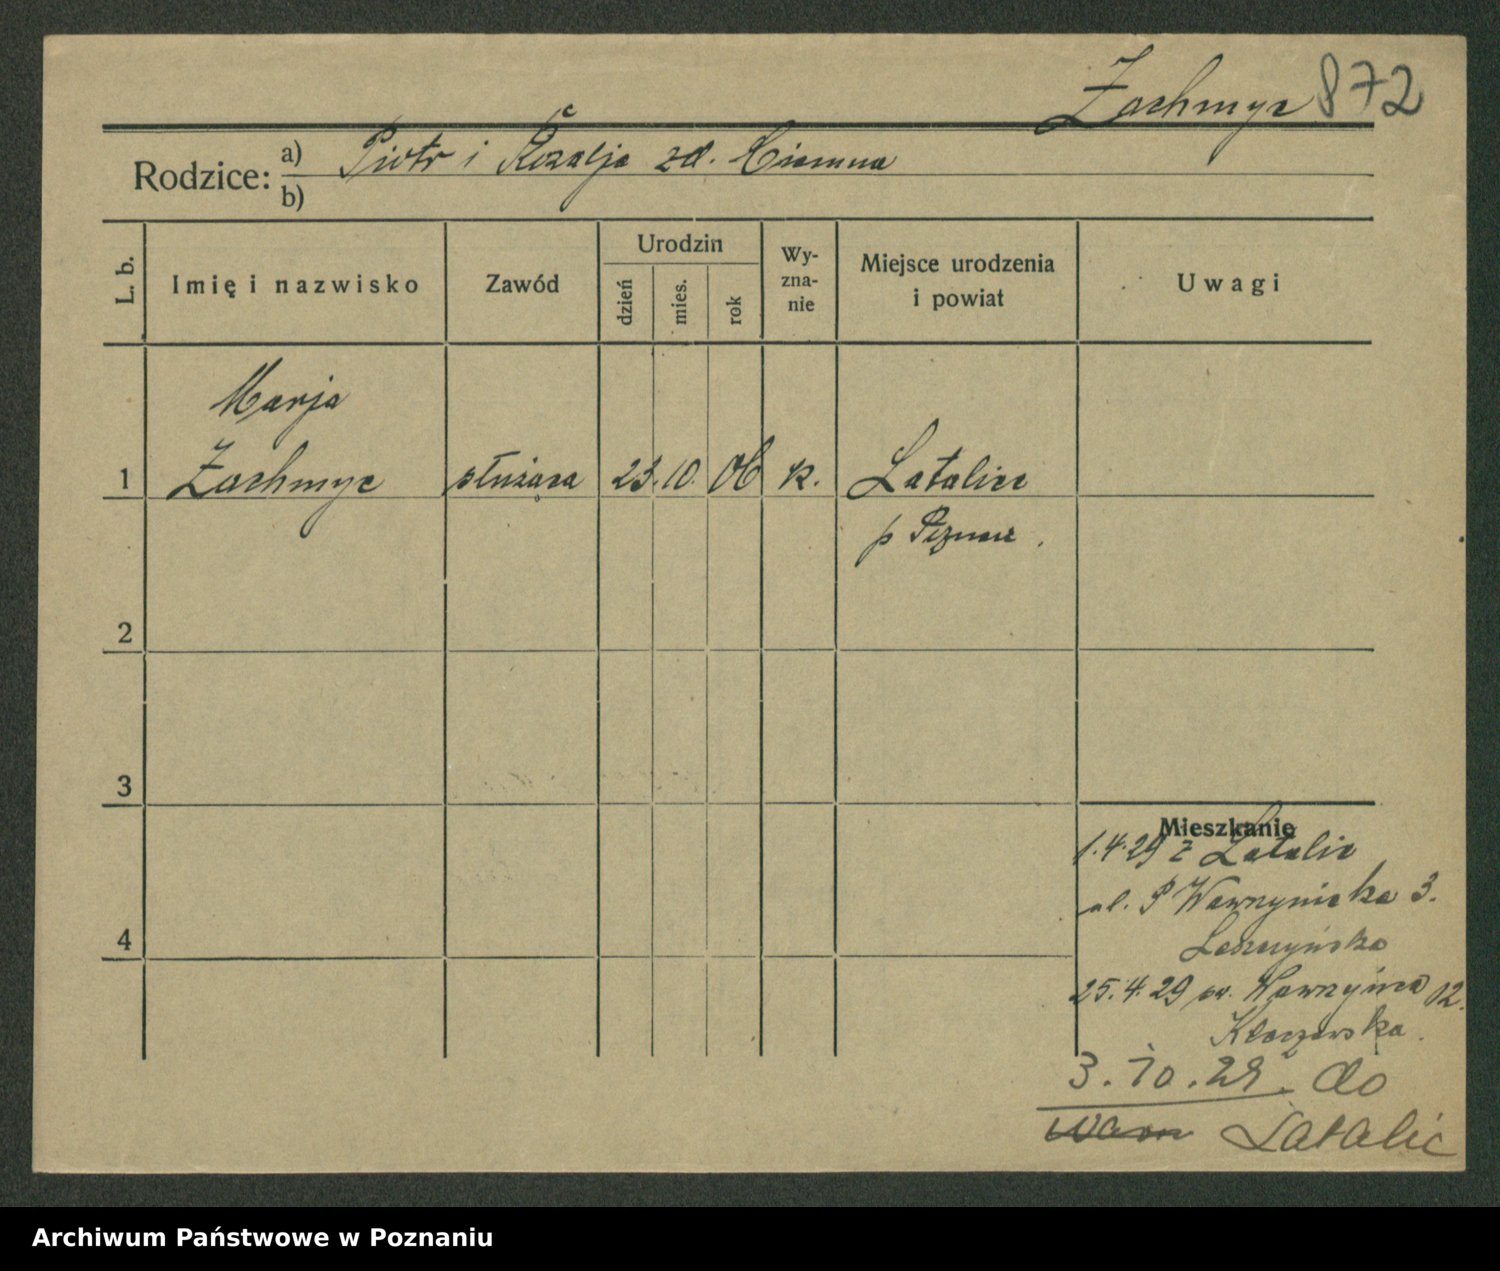 Zachmyc 872
Rodzice: a) Piotr i Rozalja zd. Ciemna
b)
L. b. Imię i nazwisko Zawód Urodzin dzień mies. rok Wyznanie Miejsce urodzenia i powiat Uwagi
Marja
1 Zachmyc służąca 23. 10. 06 k. Latalice
p Poznań.
2
3
Mieszkanie
1.4.29 z Latalic
ul. P Wawrzyniaka 3.
4
Leszczyńska
25.4.29 św. Wawrzyńca 12.
3.10.29. do
Latalic
Archiwum Państwowe w Poznaniu